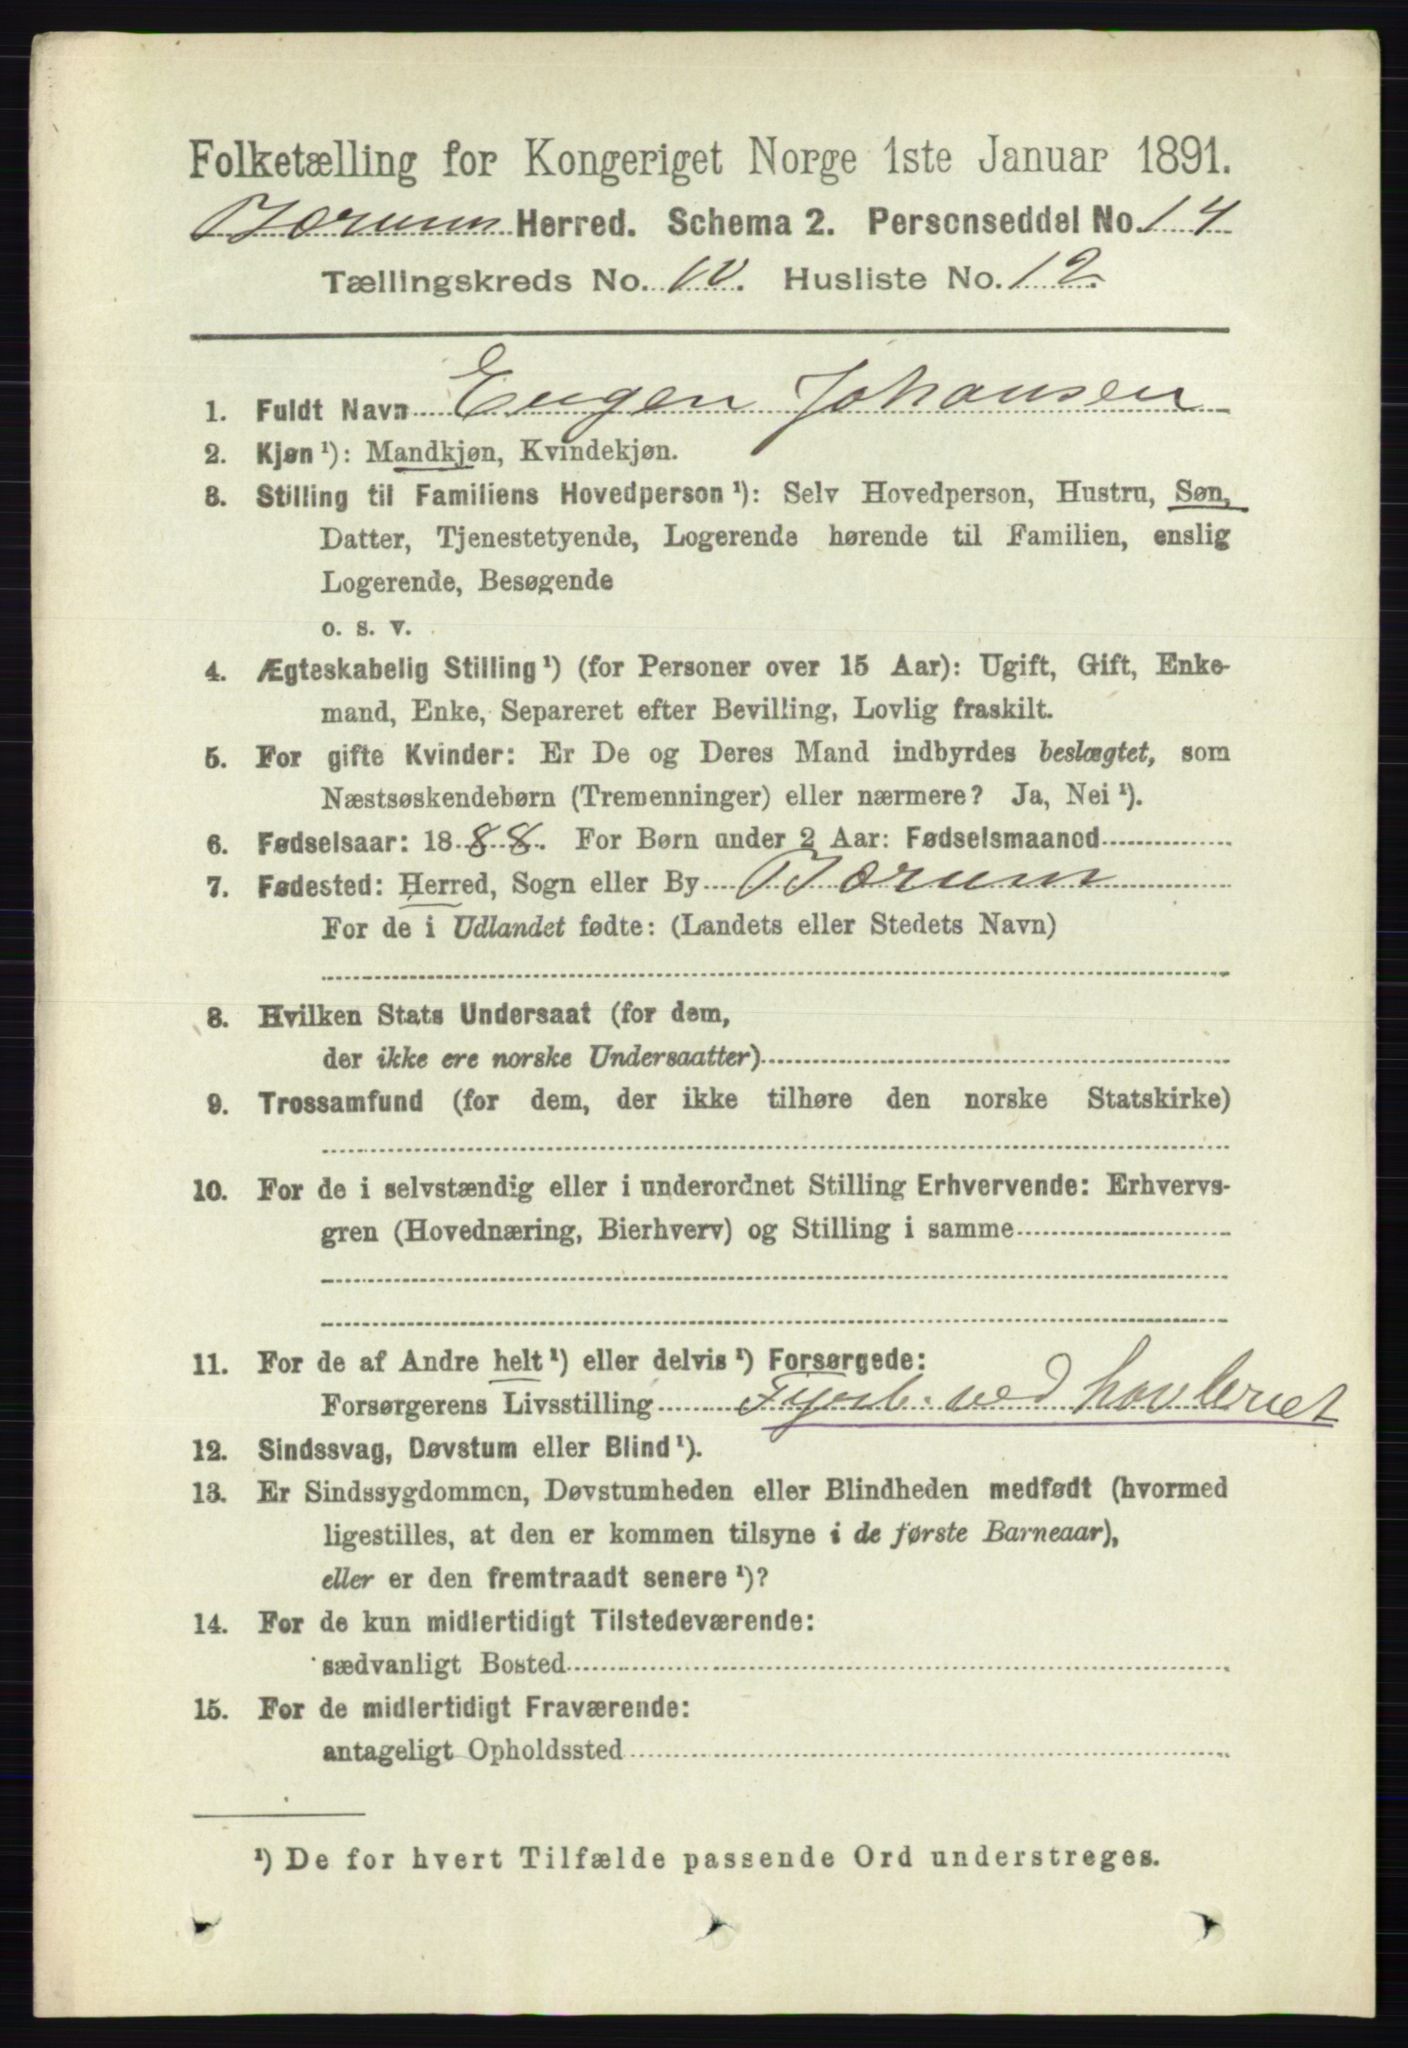 Folketælling for Kongeriget Norge 1ste Januar 1891.
Bærum Herred. Schema 2. Personseddel No. 14
Tællingskreds No. 10. Husliste No. 12.
1. Fuldt Navn Eugen Johansen
2. Kjøn ¹): Mandkjøn, Kvindekjøn.
3. Stilling til Familiens Hovedperson ¹): Selv Hovedperson, Hustru, Søn,
Datter, Tjenestetyende, Logerende hørende til Familien, enslig
Logerende, Besøgende
o. s. v.
4. Ægteskabelig Stilling ¹) (for Personer over 15 Aar): Ugift, Gift, Enke-
mand, Enke, Separeret efter Bevilling, Lovlig fraskilt.
5. For gifte Kvinder: Er De og Deres Mand indbyrdes beslægtet, som
Næstsøskendebørn (Tremenninger) eller nærmere? Ja, Nei ¹).
6. Fødselsaar: 1888. For Børn under 2 Aar: Fødselsmaaned
7. Fødested: Herred, Sogn eller By Bærum
For de i Udlandet fødte: (Landets eller Stedets Navn)
8. Hvilken Stats Undersaat (for dem,
der ikke ere norske Undersaatter)
9. Trossamfund (for dem, der ikke tilhøre den norske Statskirke)
10. For de i selvstændig eller i underordnet Stilling Erhvervende: Erhvervs-
gren (Hovednæring, Bierhverv) og Stilling i samme
11. For de af Andre helt ¹) eller delvis ¹) Forsørgede:
Forsørgerens Livsstilling ved
12. Sindssvag, Døvstum eller Blind ¹).
13. Er Sindssygdommen, Døvstumheden eller Blindheden medfødt (hvormed
ligestilles, at den er kommen tilsyne i de første Barneaar),
eller er den fremtraadt senere ¹)?
14. For de kun midlertidigt Tilstedeværende:
sædvanligt Bosted
15. For de midlertidigt Fraværende:
antageligt Opholdssted
¹) De for hvert Tilfælde passende Ord understreges.